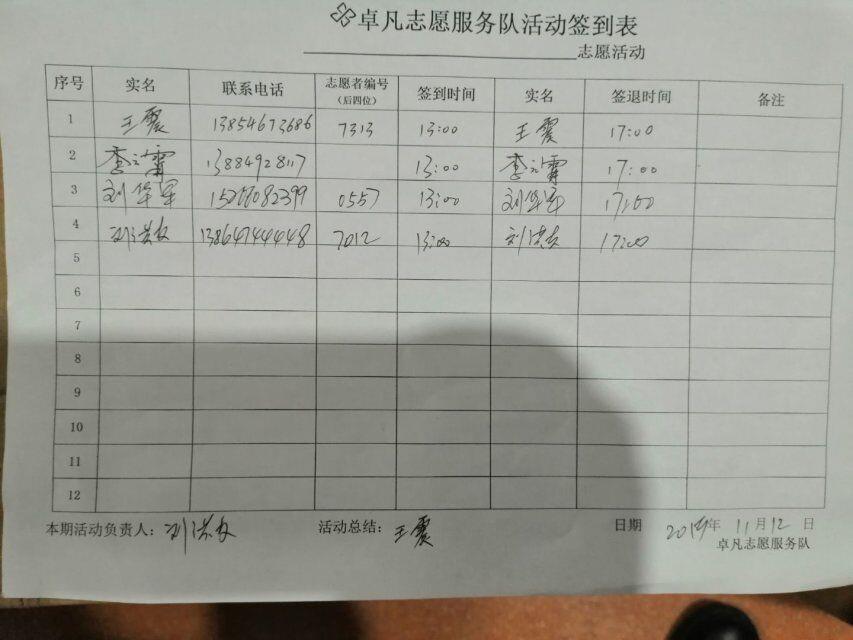 卓凡志愿服务队活动签到表
志愿活动
序号 实名 联系电话 志愿者编号(后四位) 签到时间 实名 签退时间 备注
1 王震 13854673686 7313 13:00 王震 17:00
2 李 霖 13:00 李 霖 17:00
3 刘华军 0557 13:00 刘华军 17:00
4 刘洪友 13864744448 7012 13:00 刘洪友 17:00
5
6
7
8
9
10
11
12
本期活动负责人: 刘洪友 活动总结: 王震 日期 2019年 11月12日
卓凡志愿服务队